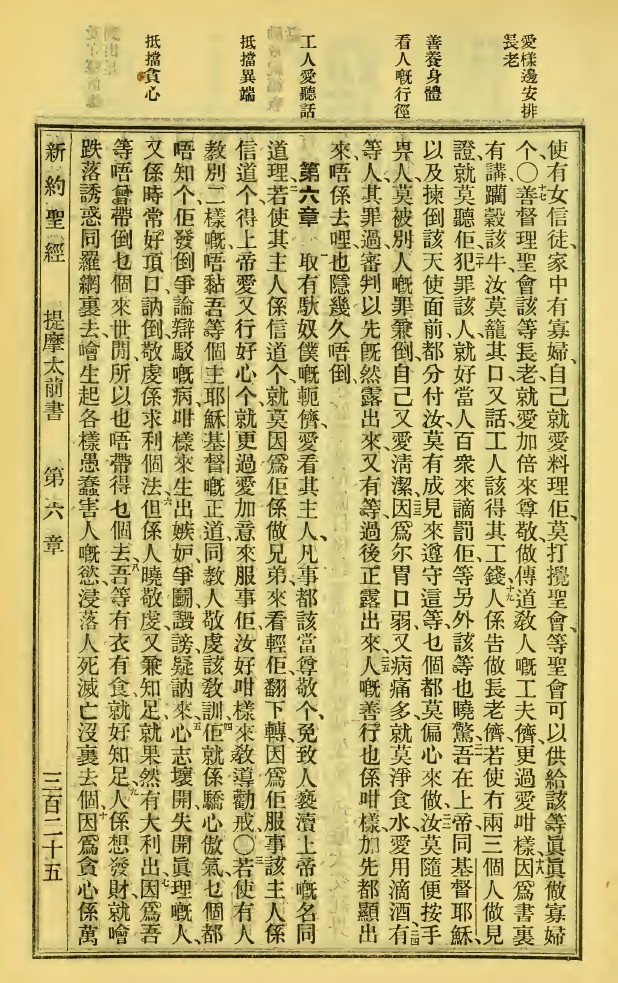 愛樣邊安排
長老
善養身體
看人嘅行徑
工人愛聽話
抵擋異端
抵擋貪心
使有女信徒、家中有寡婦、自己就愛料理佢、莫打攪聖會、等聖會可以供給該等眞眞做寡婦
个〇十七善督理聖會該等長老、就愛加倍來尊敬、做傳道教人嘅工夫儕、更過愛咁樣、十八因爲書裏
有講躪穀該牛、汝莫籠其口、又話、工人該得其工錢、十九人係告做長老儕、若使冇兩三個人做見
證、就莫聽佢、二十犯罪該人、就好當人百衆來謫罰佢、等另外該等也曉驚、吾在上帝同基督耶穌、
以及揀倒該天使面前、都分付汝、莫有成見來遵守這等、乜個都莫偏心來做、汝莫隨便按手
畀人、莫被別人嘅罪兼倒、自己又愛淸潔、因爲尔胃口弱、又病痛多、就莫淨食水、愛用滴酒、有
等人、其罪過審判以先旣然露出來、又有等過後正露出來、人嘅善行也係咁樣、加先都顯出
來、唔係去哩也隱幾久唔倒、
第六章 一取有馱奴僕嘅軛儕、愛看其主人、凡事都該當尊敬个、免致人褻瀆上帝嘅名同
道理、二若使其主人係信道个、就莫因爲佢係做兄弟來看輕佢、翻下轉、因爲佢服事該主人係
信道个、得上帝愛、又行好心个、就更過愛加意來服事佢、汝好咁樣來敎導勸戒〇三若使有人
敎別二樣嘅、唔黏吾等個主耶穌基督嘅正道、同敎人敬虔該敎訓、四佢就係驕心傲氣、乜個都
唔知个、佢發倒爭論辯駁嘅病、咁樣來生出嫉妒、爭鬭、譭謗、疑訥來、五心志壞開、失開眞理嘅人、
又係時常好項口訥倒、敬虔係求利個法、六但係人曉敬虔、又兼知足、就果然有大利出、七因爲吾
等唔曾帶倒乜個來世間、所以也唔帶得乜個去、八吾等有衣有食、就好知足、九人係想發財、就噲
跌落誘惑、同羅網裏去、噲生起各樣愚蠢害人嘅慾、浸落人死滅亡沒裏去個、十因爲貪心係萬
新約聖經 提摩太前書 第六章 三百二十五